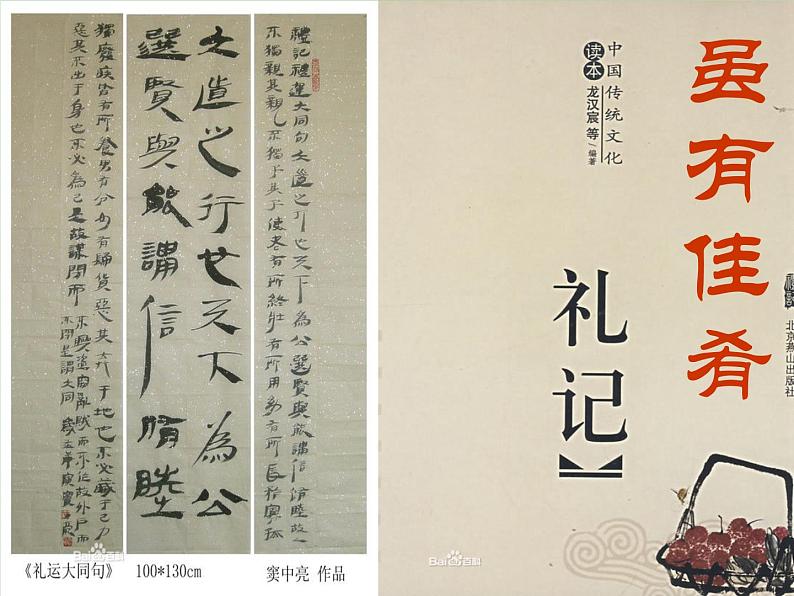 禮記禮運大同句大道之行也天下為公選賢與能講信脩睦故人
不獨親其親不獨子其子使老有所終壯有所用幼有所長矜寡孤
大道之行也天下為公
選賢與能講信脩睦
獨廢疾皆有所養男有分女有歸貨惡其弃于地也不必藏于己力
惡其不出于身也不必為己是故謀閉而
不興盜竊亂賊而不作故外戶而
不閉是謂大同
《礼运大同句》 100*130cm 窦中亮 作品
Baidu百科
虽有佳肴
中国传统文化
读本
龙汉宸 等/编著
礼记
北京燕山出版社
Baidu百科